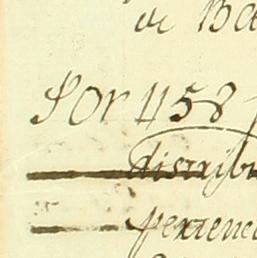 de Be
Por 458
distribu
pertenec